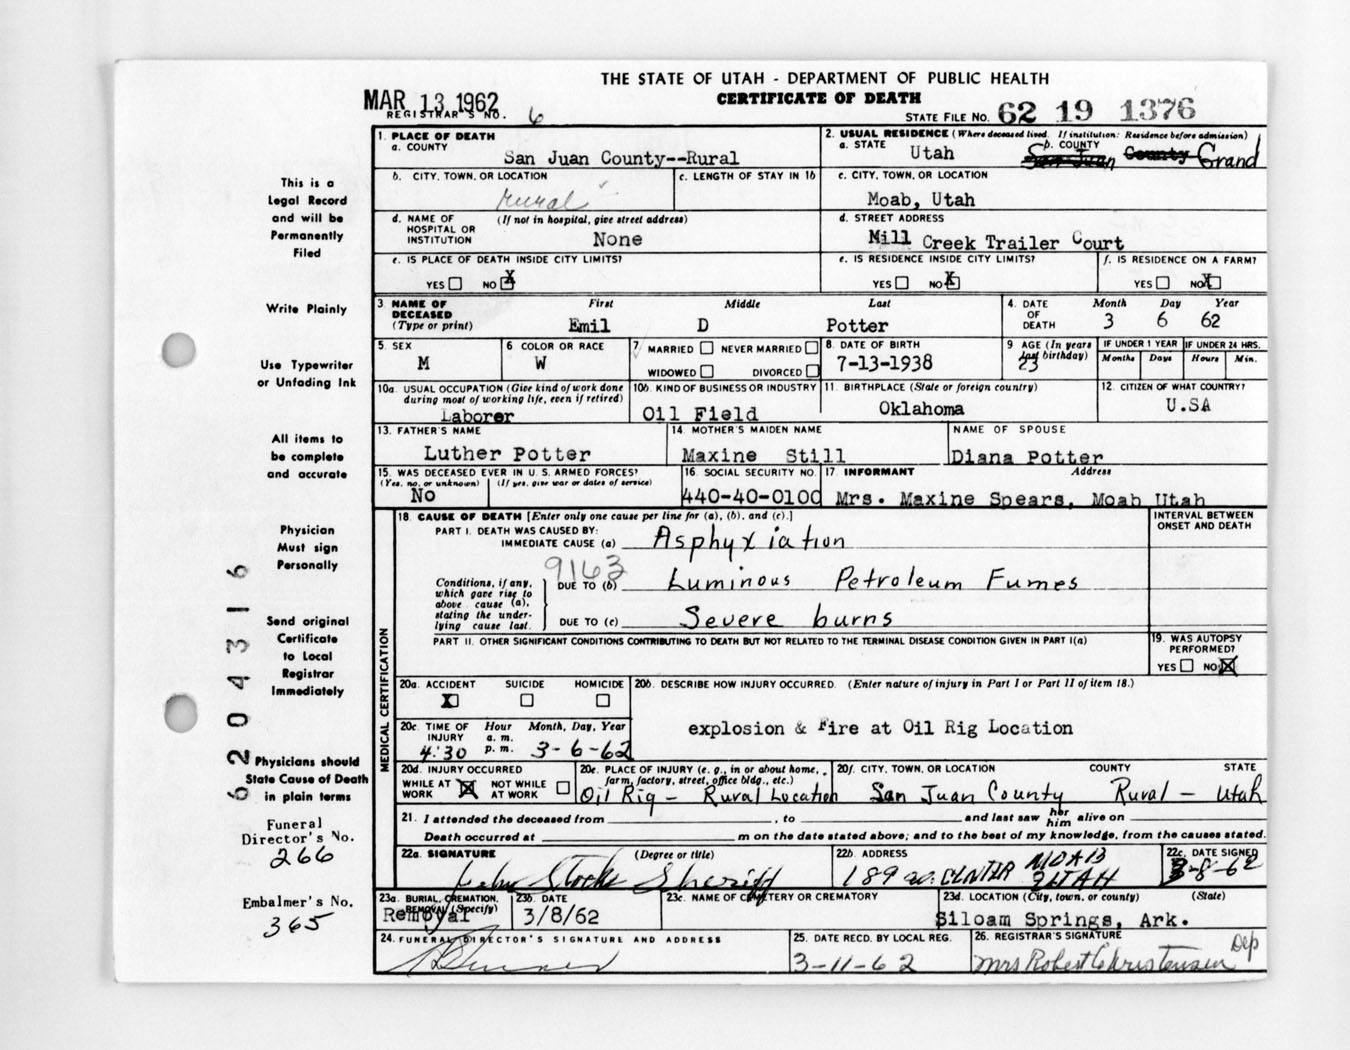 THE STATE OF UTAH - DEPARTMENT OF PUBLIC HEALTH
MAR 13 1962 CERTIFICATE OF DEATH
REGISTRAR'S NO. 6 STATE FILE NO. 62 19 1376
1. PLACE OF DEATH 2. USUAL RESIDENCE (Where deceased lived. If institution: Residence before admission)
a. COUNTY San Juan County--Rural a. STATE Utah b. COUNTY San Juan County Grand
b. CITY, TOWN, OR LOCATION rural c. LENGTH OF STAY IN 1b c. CITY, TOWN, OR LOCATION Moab, Utah
d. NAME OF HOSPITAL OR INSTITUTION (If not in hospital, give street address) None d. STREET ADDRESS Mill Creek Trailer Court
e. IS PLACE OF DEATH INSIDE CITY LIMITS? e. IS RESIDENCE INSIDE CITY LIMITS? f. IS RESIDENCE ON A FARM?
YES NO X YES NO X YES NO X
3. NAME OF DECEASED (Type or print) First Middle Last 4. DATE OF DEATH Month Day Year
Emil D Potter 3 6 62
5. SEX 6 COLOR OR RACE 7 MARRIED NEVER MARRIED 8. DATE OF BIRTH 9 AGE (In years last birthday) IF UNDER 1 YEAR IF UNDER 24 HRS.
M W WIDOWED DIVORCED 7-13-1938 23 Months Days Hours Min.
10a. USUAL OCCUPATION (Give kind of work done during most of working life, even if retired) 10b. KIND OF BUSINESS OR INDUSTRY 11. BIRTHPLACE (State or foreign country) 12. CITIZEN OF WHAT COUNTRY?
Laborer Oil Field Oklahoma U.SA
13. FATHER'S NAME 14. MOTHER'S MAIDEN NAME NAME OF SPOUSE
Luther Potter Maxine Still Diana Potter
15. WAS DECEASED EVER IN U. S. ARMED FORCES? 16. SOCIAL SECURITY NO. 17. INFORMANT Address
(Yes, no, or unknown) (If yes, give war or dates of service)
No 440-40-0100 Mrs. Maxine Spears, Moab Utah
18. CAUSE OF DEATH [Enter only one cause per line for (a), (b), and (c).] INTERVAL BETWEEN ONSET AND DEATH
PART I. DEATH WAS CAUSED BY:
IMMEDIATE CAUSE (a) Asphyxiation
9163
Conditions, if any, which gave rise to above cause (a), stating the underlying cause last. DUE TO (b) Luminous Petroleum Fumes
DUE TO (c) Severe burns
PART II. OTHER SIGNIFICANT CONDITIONS CONTRIBUTING TO DEATH BUT NOT RELATED TO THE TERMINAL DISEASE CONDITION GIVEN IN PART I(a) 19. WAS AUTOPSY PERFORMED?
YES NO X
MEDICAL CERTIFICATION
20a. ACCIDENT SUICIDE HOMICIDE 20b. DESCRIBE HOW INJURY OCCURRED. (Enter nature of injury in Part I or Part II of item 18.)
X
20c. TIME OF INJURY Hour a. m. p. m. Month, Day, Year explosion & Fire at Oil Rig Location
4:30 3-6-62
20d. INJURY OCCURRED 20e. PLACE OF INJURY (e. g., in or about home, farm, factory, street, office bldg., etc.) 20f. CITY, TOWN, OR LOCATION COUNTY STATE
WHILE AT WORK X NOT WHILE AT WORK Oil Rig - Rural Location San Juan County Rural - Utah
21. I attended the deceased from , to and last saw her him alive on
Death occurred at m on the date stated above; and to the best of my knowledge, from the causes stated.
22a. SIGNATURE (Degree or title) 22b. ADDRESS 22c. DATE SIGNED
John Stocks Sheriff 189 CENTER MOAB UTAH 3-8-62
23a. BURIAL, CREMATION, REMOVAL (Specify) 23b. DATE 23c. NAME OF CEMETERY OR CREMATORY 23d. LOCATION (City, town, or county) (State)
Removal 3/8/62 Siloam Springs, Ark.
24. FUNERAL DIRECTOR'S SIGNATURE AND ADDRESS 25. DATE RECD. BY LOCAL REG. 26. REGISTRAR'S SIGNATURE
3-11-62 Mrs Robert Christensen Dep
This is a
Legal Record
and will be
Permanently
Filed
Write Plainly
Use Typewriter
or Unfading Ink
All items to
be complete
and accurate
Physician
Must sign
Personally
Send original
Certificate
to Local
Registrar
Immediately
Physicians should
State Cause of Death
in plain terms
Funeral
Director's No.
266
Embalmer's No.
365
62 04316